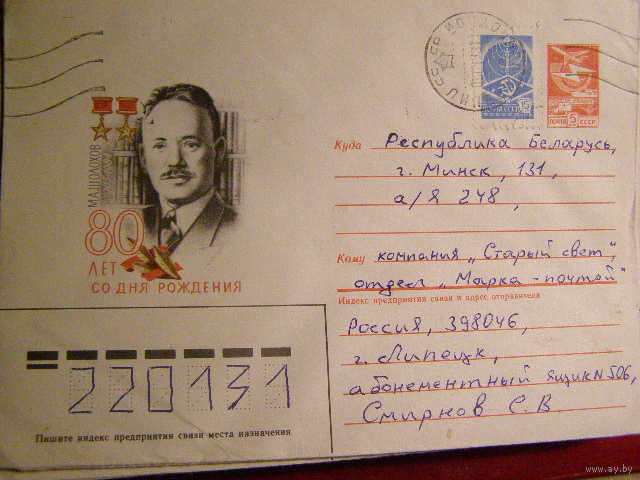 М.А.ШОЛОХОВ
80
ЛЕТ
СО ДНЯ РОЖДЕНИЯ
15
ПОЧТА 5 СССР
Куда Республика Беларусь,
г. Минск, 131,
а/я 248,
Кому компания „Старый свет",
отдел „Марка-почтой"
Индекс предприятия связи и адрес отправителя
Россия, 398046,
г. Липецк,
абонементный ящик N 506,
Смирнов С.В.
220131
Пишите индекс предприятия связи места назначения
www.ay.by